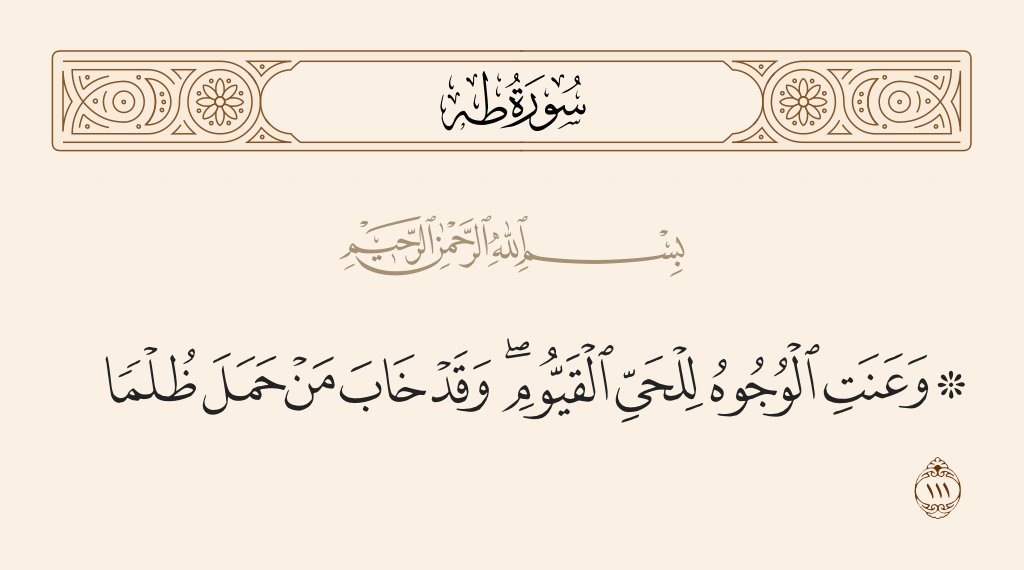 سُورَةُ طه
بِسْمِ ٱللَّهِ ٱلرَّحْمَٰنِ ٱلرَّحِيمِ
۞ وَعَنَتِ ٱلْوُجُوهُ لِلْحَىِّ ٱلْقَيُّومِ ۖ وَقَدْ خَابَ مَنْ حَمَلَ ظُلْمًا
١١١